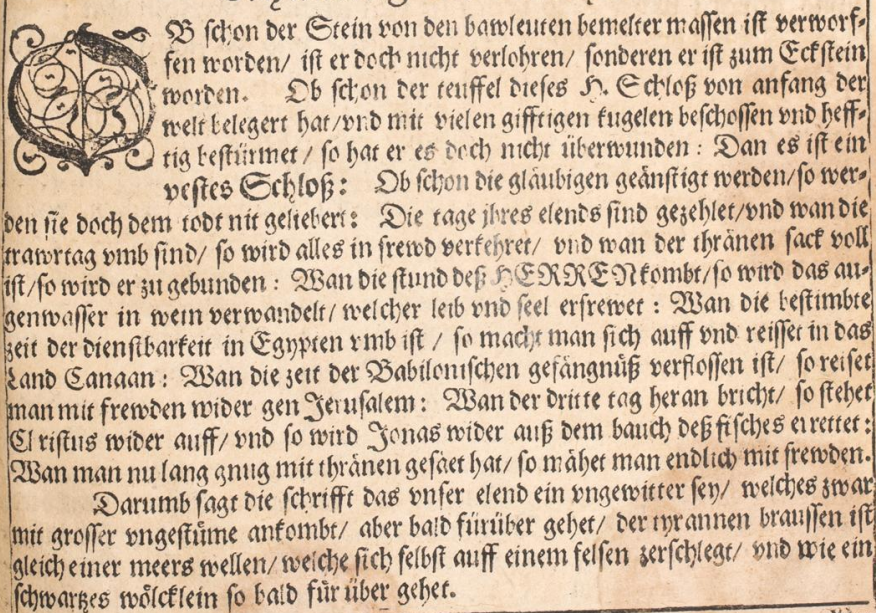 OB schon der Stein von den bawleuten bemelter massen ist verworf-
fen worden/ ist er doch nicht verlohren/ sonderen er ist zum Eckstein
worden. Ob schon der teuffel dieses H. Schloß von anfang der
welt belegert hat/vnd mit vielen gifftigen kugelen beschossen vnd heff-
tig bestürmet/ so hat er es doch nicht überwunden: Dan es ist ein
vestes Schloß: Ob schon die gläubigen geänstigt werden/so wer-
den sie doch dem todt nit geliebert: Die tage jhres elends sind gezehlet/vnd wan die
trawrtag vmb sind/ so wird alles in frewd verkehret/ vnd wan der thränen sack voll
ist/so wird er zu gebunden: Wan die stund deß HERREN kombt/so wird das au-
genwasser in wein verwandelt/ welcher leib vnd seel erfrewet: Wan die bestimbte
zeit der dienstbarkeit in Egypten vmb ist/ so macht man sich auff vnd reisset in das
Land Canaan: Wan die zeit der Babilonischen gefängnüß verflossen ist/ so reiset
man mit frewden wider gen Jerusalem: Wan der dritte tag heran bricht/ so stehet
Christus wider auff/ vnd so wird Jonas wider auß dem bauch deß fisches errettet:
Wan man nu lang gnug mit thränen gesäet hat/ so mähet man endlich mit frewden.
Darumb sagt die schrifft das vnser elend ein vngewitter sey/ welches zwar
mit grosser vngestüme ankombt/ aber bald fürüber gehet/ der tyrannen braussen ist
gleich einer meers wellen/ welche sich selbst auff einem felsen zerschlegt/ vnd wie ein
schwartzes wölcklein so bald für über gehet.